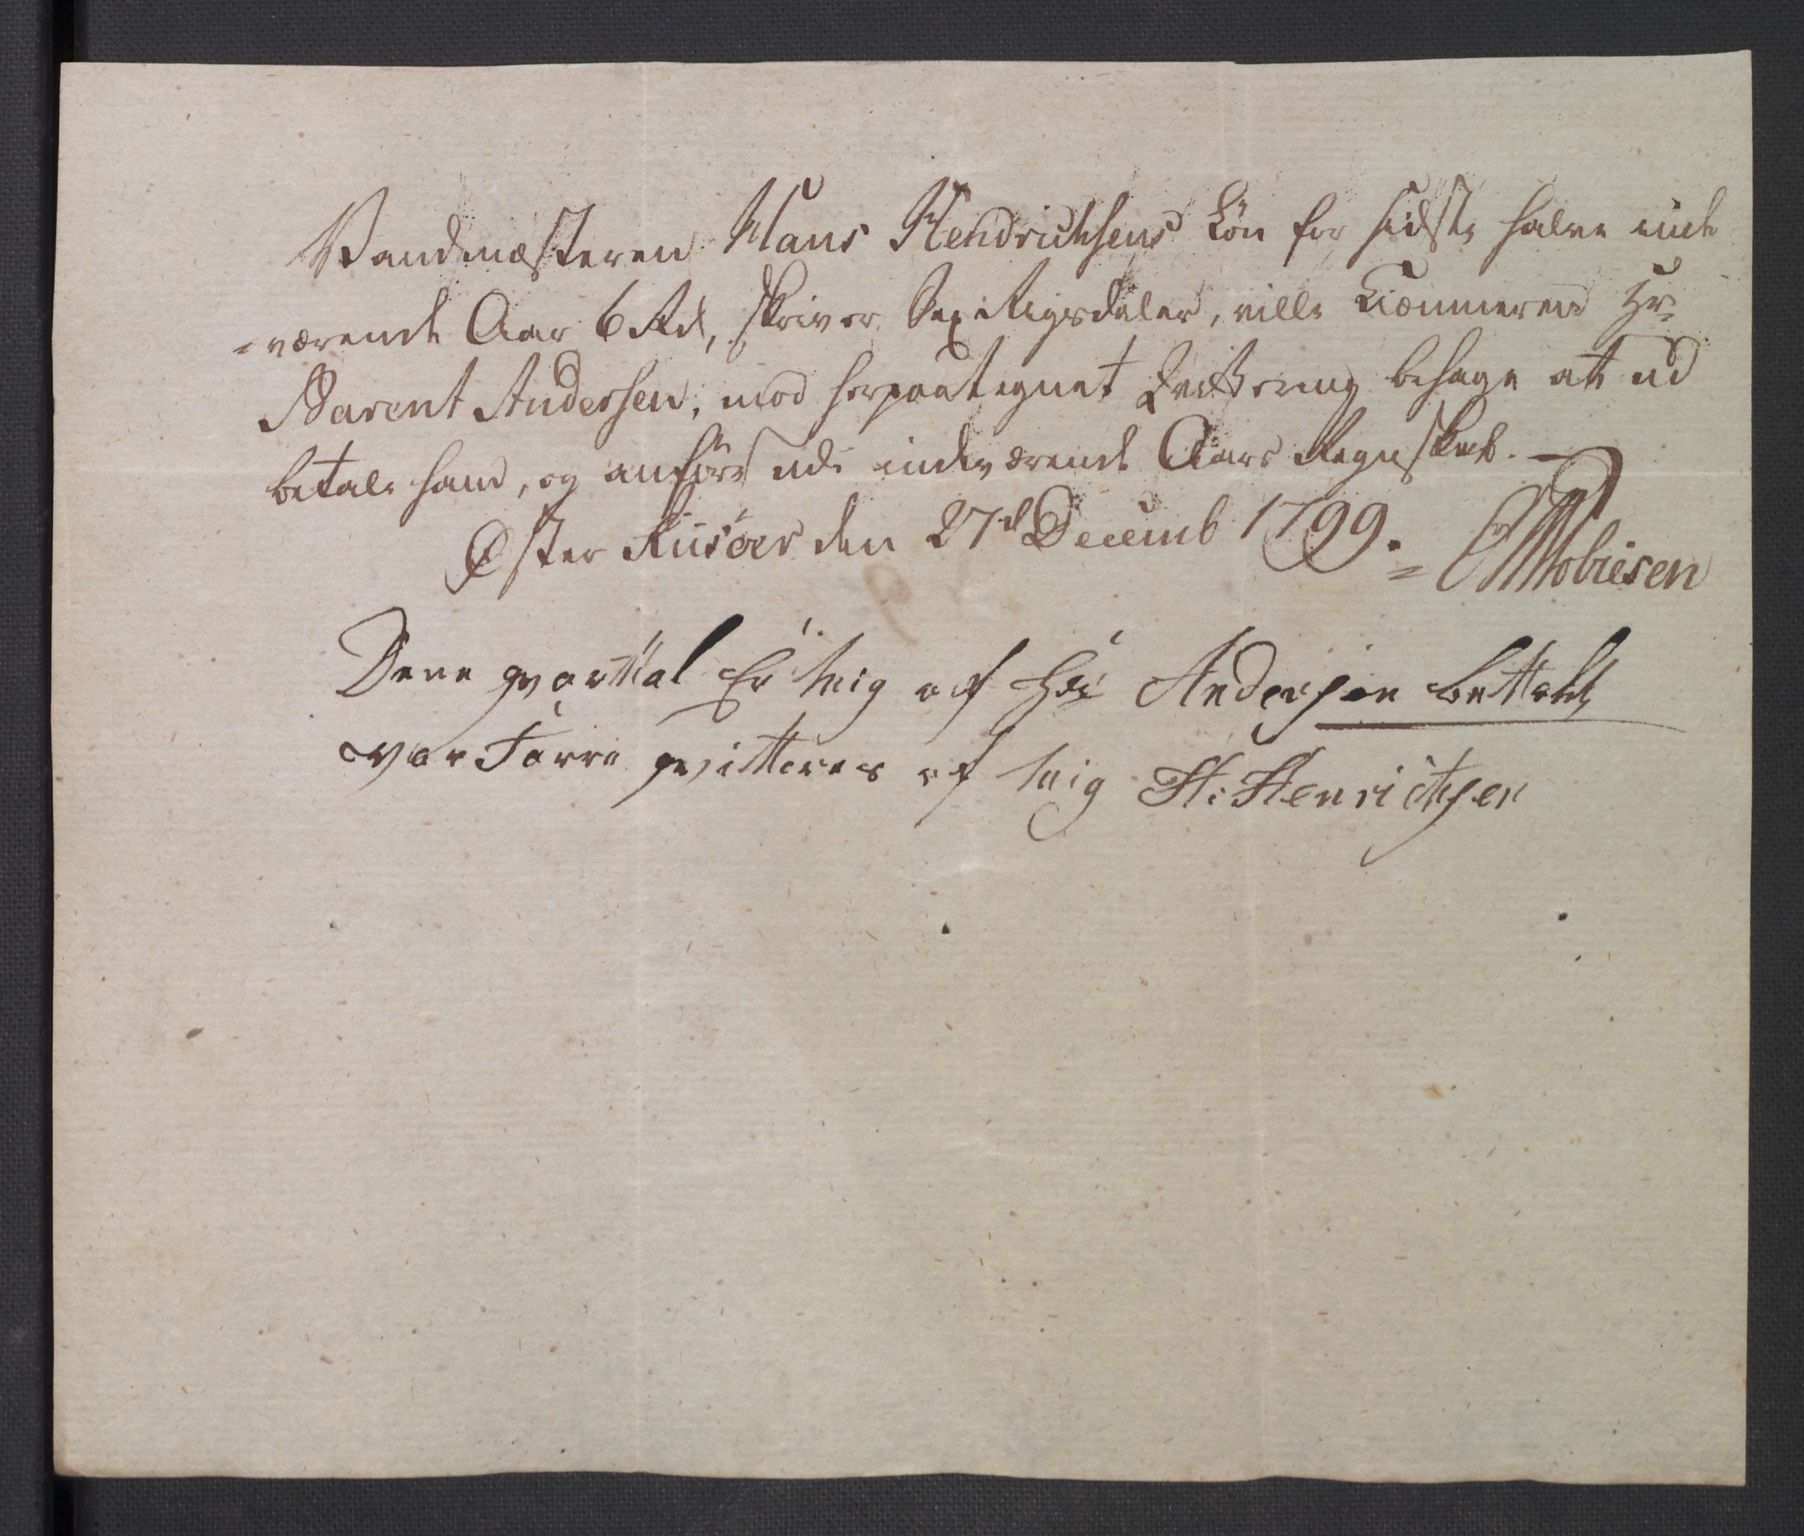 Vandmæsteren Hans Hendrichsens Løn for sidste halve inde
-værende Aar 6 Rd, skriver Sex Rigsdaler, ville Kiæmneren Hr
Barent Andersen, mod herpaategnet Qvittering behage at ud
betale ham, og anføre udi indeværende Aars Regnskab.
Øster Riisøer den 27d Decemb 1799.
Dene qvarttal Er Mig af Hr Andersen bettalt
vor Forre qvitteres af Mig H: Henrichsen